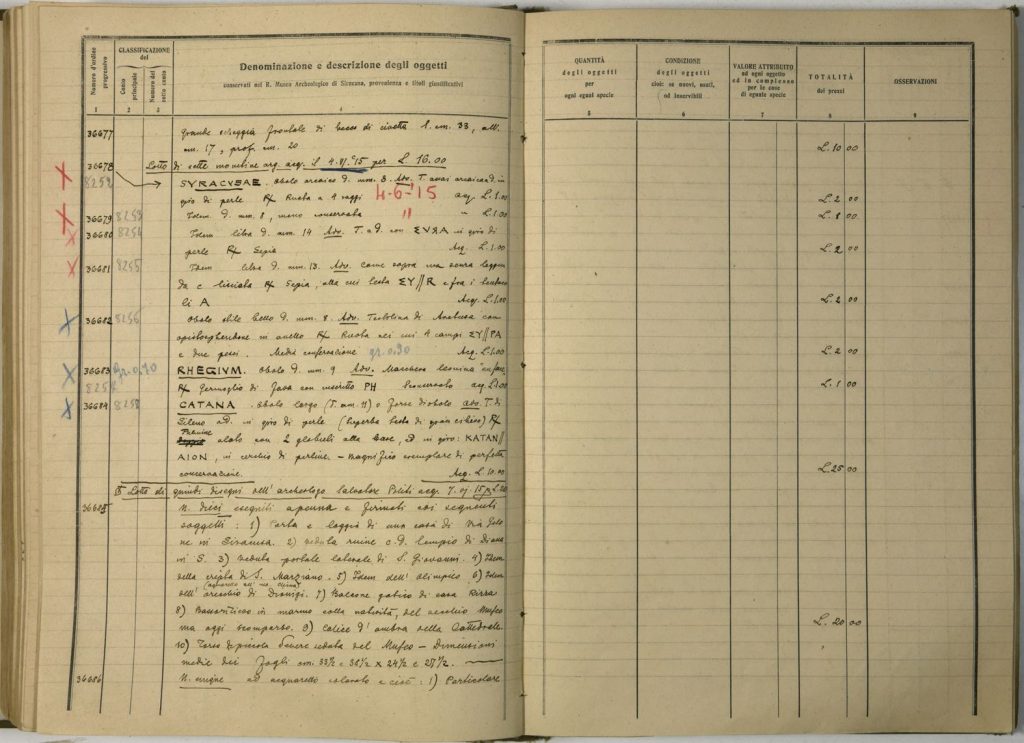 Numero d'ordine progressivo
CLASSIFICAZIONE del
Conto principale
Numero del sotto conto
Denominazione e descrizione degli oggetti
conservati nel R. Museo Archeologico di Siracusa, provenienza e titoli giustificativi
1 2 3 4
36677 Grande scheggia frontale di bocco di civetta l. cm. 33, alt.
cm. 17, prof. cm. 20
36678 Lotto di sette monetine arg. acq. il 4.VI.'15 per L. 16.00
8252 SYRACVSAE. Obolo arcaico d. mm. 3. Adv. T. arcaicand. in
giro di perle R/ Ruota a 4 raggi 4-6-'15 acq. L. 1.00
36679 8253 Idem d. mm. 8, meno conservata " " L. 1.00
36680 8254 Idem litra d. mm. 14 Adv. T. a d. con ΣVRA in giro di
perle R/ Sepia Acq. L. 1.00
36681 8255 Idem litra d. mm. 13. Adv. come sopra ma senza leggen
da e lisciata R/ Sepia, alla cui testa ΣY//R e fra i tentaco
li A Acq. L. 1.00
36682 8256 Obolo stile bello d. mm. 8. Adv. Testolina di Aretusa con
opistosphendone in anello R/ Ruota nei cui 4 campi ΣY//PA
e due pesci. Media conservazione gr. 0.90 Acq. L. 1.00
36683 gr. 0.70 RHEGIVM. Obolo d. mm. 9 Adv. Maschera leonina in facc.
8257 R/ Germoglio di fava con inscritto PH Conservato acq. L. 1.00
36684 8258 CATANA. Obolo largo (T. mm. 11) o forse diobolo adv. T. di
Sileno a d. in giro di perle (superba testa di gran cesello) R/
Fulmine
alato con 2 globetti alla base, in giro: KATAN//
AION, in cerchio di perline. - Magnifico esemplare di perfetta
conservazione. Acq. L. 10.00
Lotto di quindici disegni dell'archeologo Salvatore Politi acq. 7. VI. 15 p. L. 20
36685 N. dieci eseguiti a penna e firmati coi seguenti
soggetti: 1) Porta e loggia di una casa di Via Gelo
ne in Siracusa. 2) Veduta ruine c.d. tempio di Diana
in S. 3) Veduta portale laterale di S. Giovanni. 4) Idem
della cripta di S. Marziano. 5) Idem dell'olimpico 6) Idem
dell'orecchio di Dionigi. 7) Balcone gotico di casa Rizza
8) Bassorilievo in marmo colla natività, del vecchio Museo
ma oggi scomparso. 9) Calice d'ambra della Cattedrale.
10) Torso di piccola Venere seduta del Museo - Dimensioni
medie dei fogli cm. 33½ e 31½ x 24½ e 27½.
36686 N. cinque ad acquarello colorato e cioè: 1) Particolare
QUANTITÀ degli oggetti per ogni eguale specie
CONDIZIONE degli oggetti cioè: se nuovi, usati, od inservibili
VALORE ATTRIBUITO ad ogni oggetto ed in complesso per le cose di eguale specie
TOTALITÀ dei prezzi
OSSERVAZIONI
5 6 7 8 9
L. 10 00
L. 2 00
L. 8 00
L. 2 00
L. 2 00
L. 2 00
L. 1 00
L. 25 00
L. 20 00